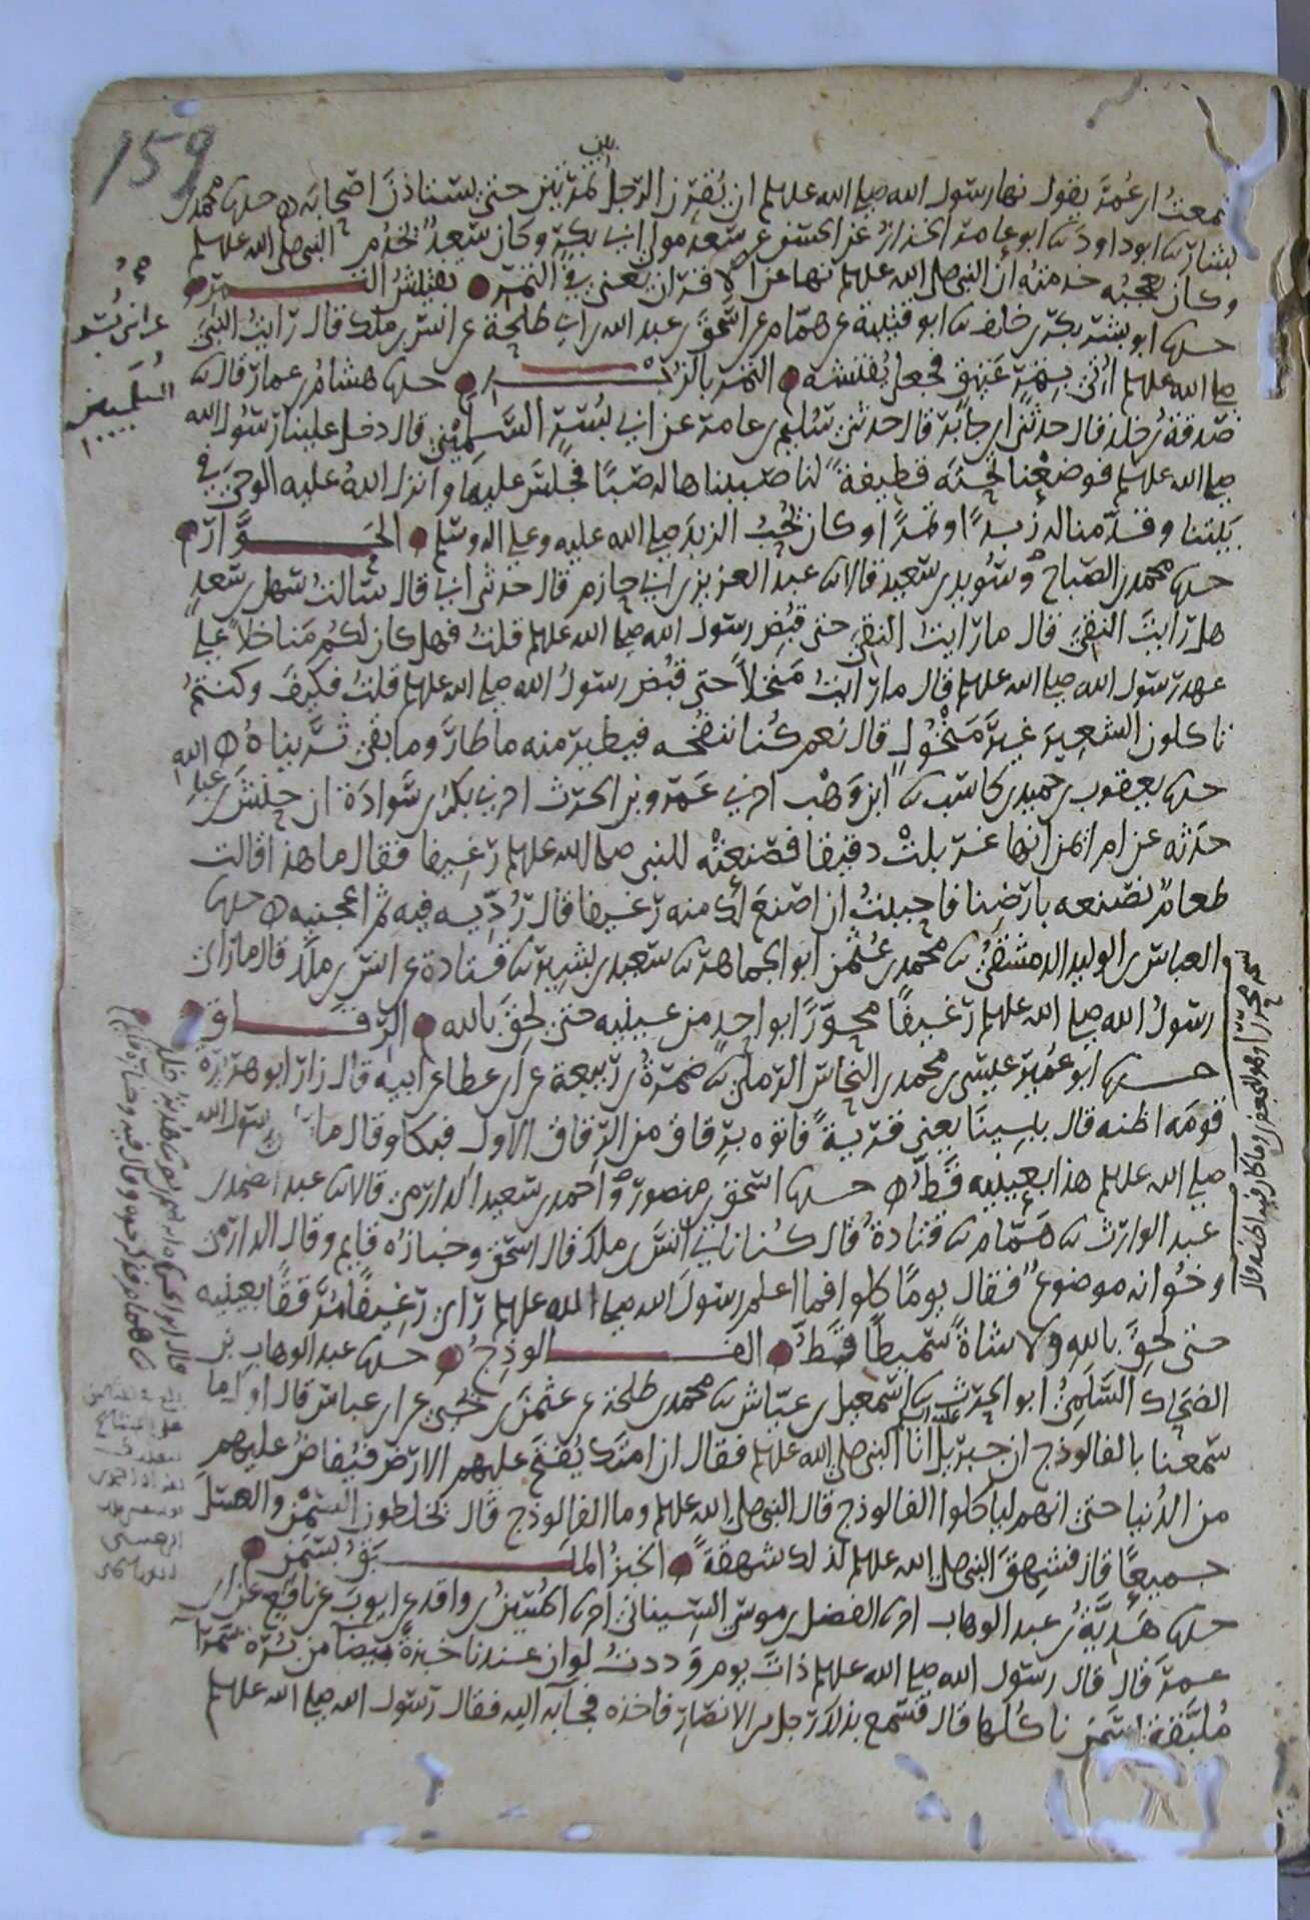 159
بين
سمعت ابن عمر يقول نها رسول الله صلى الله علىه وسلم ان يقرن الرجل تمرتين حتى يستاذن اصحابه ه حدثنا محمد بن
بشار نا ابو داود نا ابو عامر الخزاز عن الحسن عن سعد مولى ابي بكر وكان سعد يخدم النبي صلى الله علىه وسلم
وكان يعجبه خدمته ان النبي صلى الله علىه وسلم نها عن الاقران يعني في التمر • تفتيش التمر •
حدثنا ابو بشر بكر بن خلف نا ابو قتيبة عن همام عن اسحق بن عبد الله بن ابي طلحة عن انس بن ملك قال رايت النبي
صلى الله علىه وسلم اتي بتمر عتيق فجعل يفتشه • التمر بالزبد • حدثنا هشام بن عمار قال نا
صدقة بن خلد قال حدثني ابن جابر قال حدثني سليم بن عامر عن ابني بسر السلميين قال دخل علينا رسول الله
صلى الله علىه وسلم فوضعنا تحته قطيفة لنا صببناها له صبا فجلس عليها وانزل الله عليه الوحي في
بيتنا وقدمنا له زبدا وتمرا وكان يحب الزبد صلى الله عليه وعلى اله وسلم • الحوارى •
حدثنا محمد بن الصباح وسويد بن سعيد قالا نا عبد العزيز بن ابي حازم قال حدثني ابي قال سالت سهل بن سعد
هل رايت النقي قال ما رايت النقي حتى قبض رسول الله صلى الله علىه وسلم قلت فهل كان لكم مناخل على
عهد رسول الله صلى الله علىه وسلم قال ما رايت منخلا حتى قبض رسول الله صلى الله علىه وسلم قلت فكيف كنتم
تاكلون الشعير غير منخول قال نعم كنا ننفخه فيطير منه ما طار وما بقي ثريناه ه
حدثنا يعقوب بن حميد بن كاسب نا ابن وهب اخبرني عمرو بن الحرث اخبرني بكر بن سوادة ان حنش بن عبد الله
حدثه عن ام ايمن انها غربلت دقيقا فصنعته للنبي صلى الله علىه وسلم رغيفا فقال ما هذا قالت
طعام نصنعه بارضنا فاحببت ان اصنع لك منه رغيفا قال رديه فيه ثم اعجنيه ه حدثنا
العباس بن الوليد الدمشقي نا محمد بن عثمن ابو الجماهر نا سعيد بن بشير نا قتادة عن انس بن ملك قال ما راى
رسول الله صلى الله علىه وسلم رغيفا محورا بواحد من عينيه حتى لحق بالله • الرقاق •
حدثنا ابو عمير عيسى بن محمد بن النحاس الرملي نا ضمرة بن ربيعة عن ابن عطا عن ابيه قال زار ابو هريرة
قومه اظنه قال بيسينا يعني قرية فاتوه برقاق من الرقاق الاول فبكا وقال ما راى رسول الله
صلى الله علىه وسلم هذا بعينيه قط ه حدثنا اسحق بن منصور واحمد بن سعيد الدارمي قالا نا عبد الصمد بن
عبد الوارث نا همام نا قتادة قال كنا ناتي انس بن ملك قال اسحق وخبازه قايم وقال الدارمي
وخوانه موضوع فقال يوما كلوا فما اعلم رسول الله صلى الله علىه وسلم راى رغيفا مرققا بعينيه
حتى لحق بالله ولا شاة سميطا قط • الفالوذج • حدثنا عبد الوهاب بن
الضحاك السلمي ابو الحرث نا اسمعيل بن عياش نا محمد بن طلحة عن عثمن بن يحيى عن ابن عباس قال اول ما
سمعنا بالفالوذج ان جبريل عليه السلم اتا النبي صلى الله علىه وسلم فقال ان امتك يفتح عليهم الارض فيفاض عليهم
من الدنيا حتى انهم لياكلوا الفالوذج قال النبي صلى الله علىه وسلم وما الفالوذج قال يخلطون السمن والعسل
جميعا قال فشهق النبي صلى الله علىه وسلم لذلك شهقة • الخبز الملبق بسمن •
حدثنا هدية بن عبد الوهاب اخبرنا الفضل بن موسى السيناني اخبرنا الحسين بن واقد عن ايوب عن نافع عن ابن
عمر قال قال رسول الله صلى الله علىه وسلم ذات يوم وددت لو ان عندنا خبزة بيضا من برة سمرا
ملبقة بسمن ناكلها قال فسمع بذلك رجل من الانصار فاخذه فجا به اليه فقال رسول الله صلى الله علىه وسلم
عن ابني بسر
السلميين